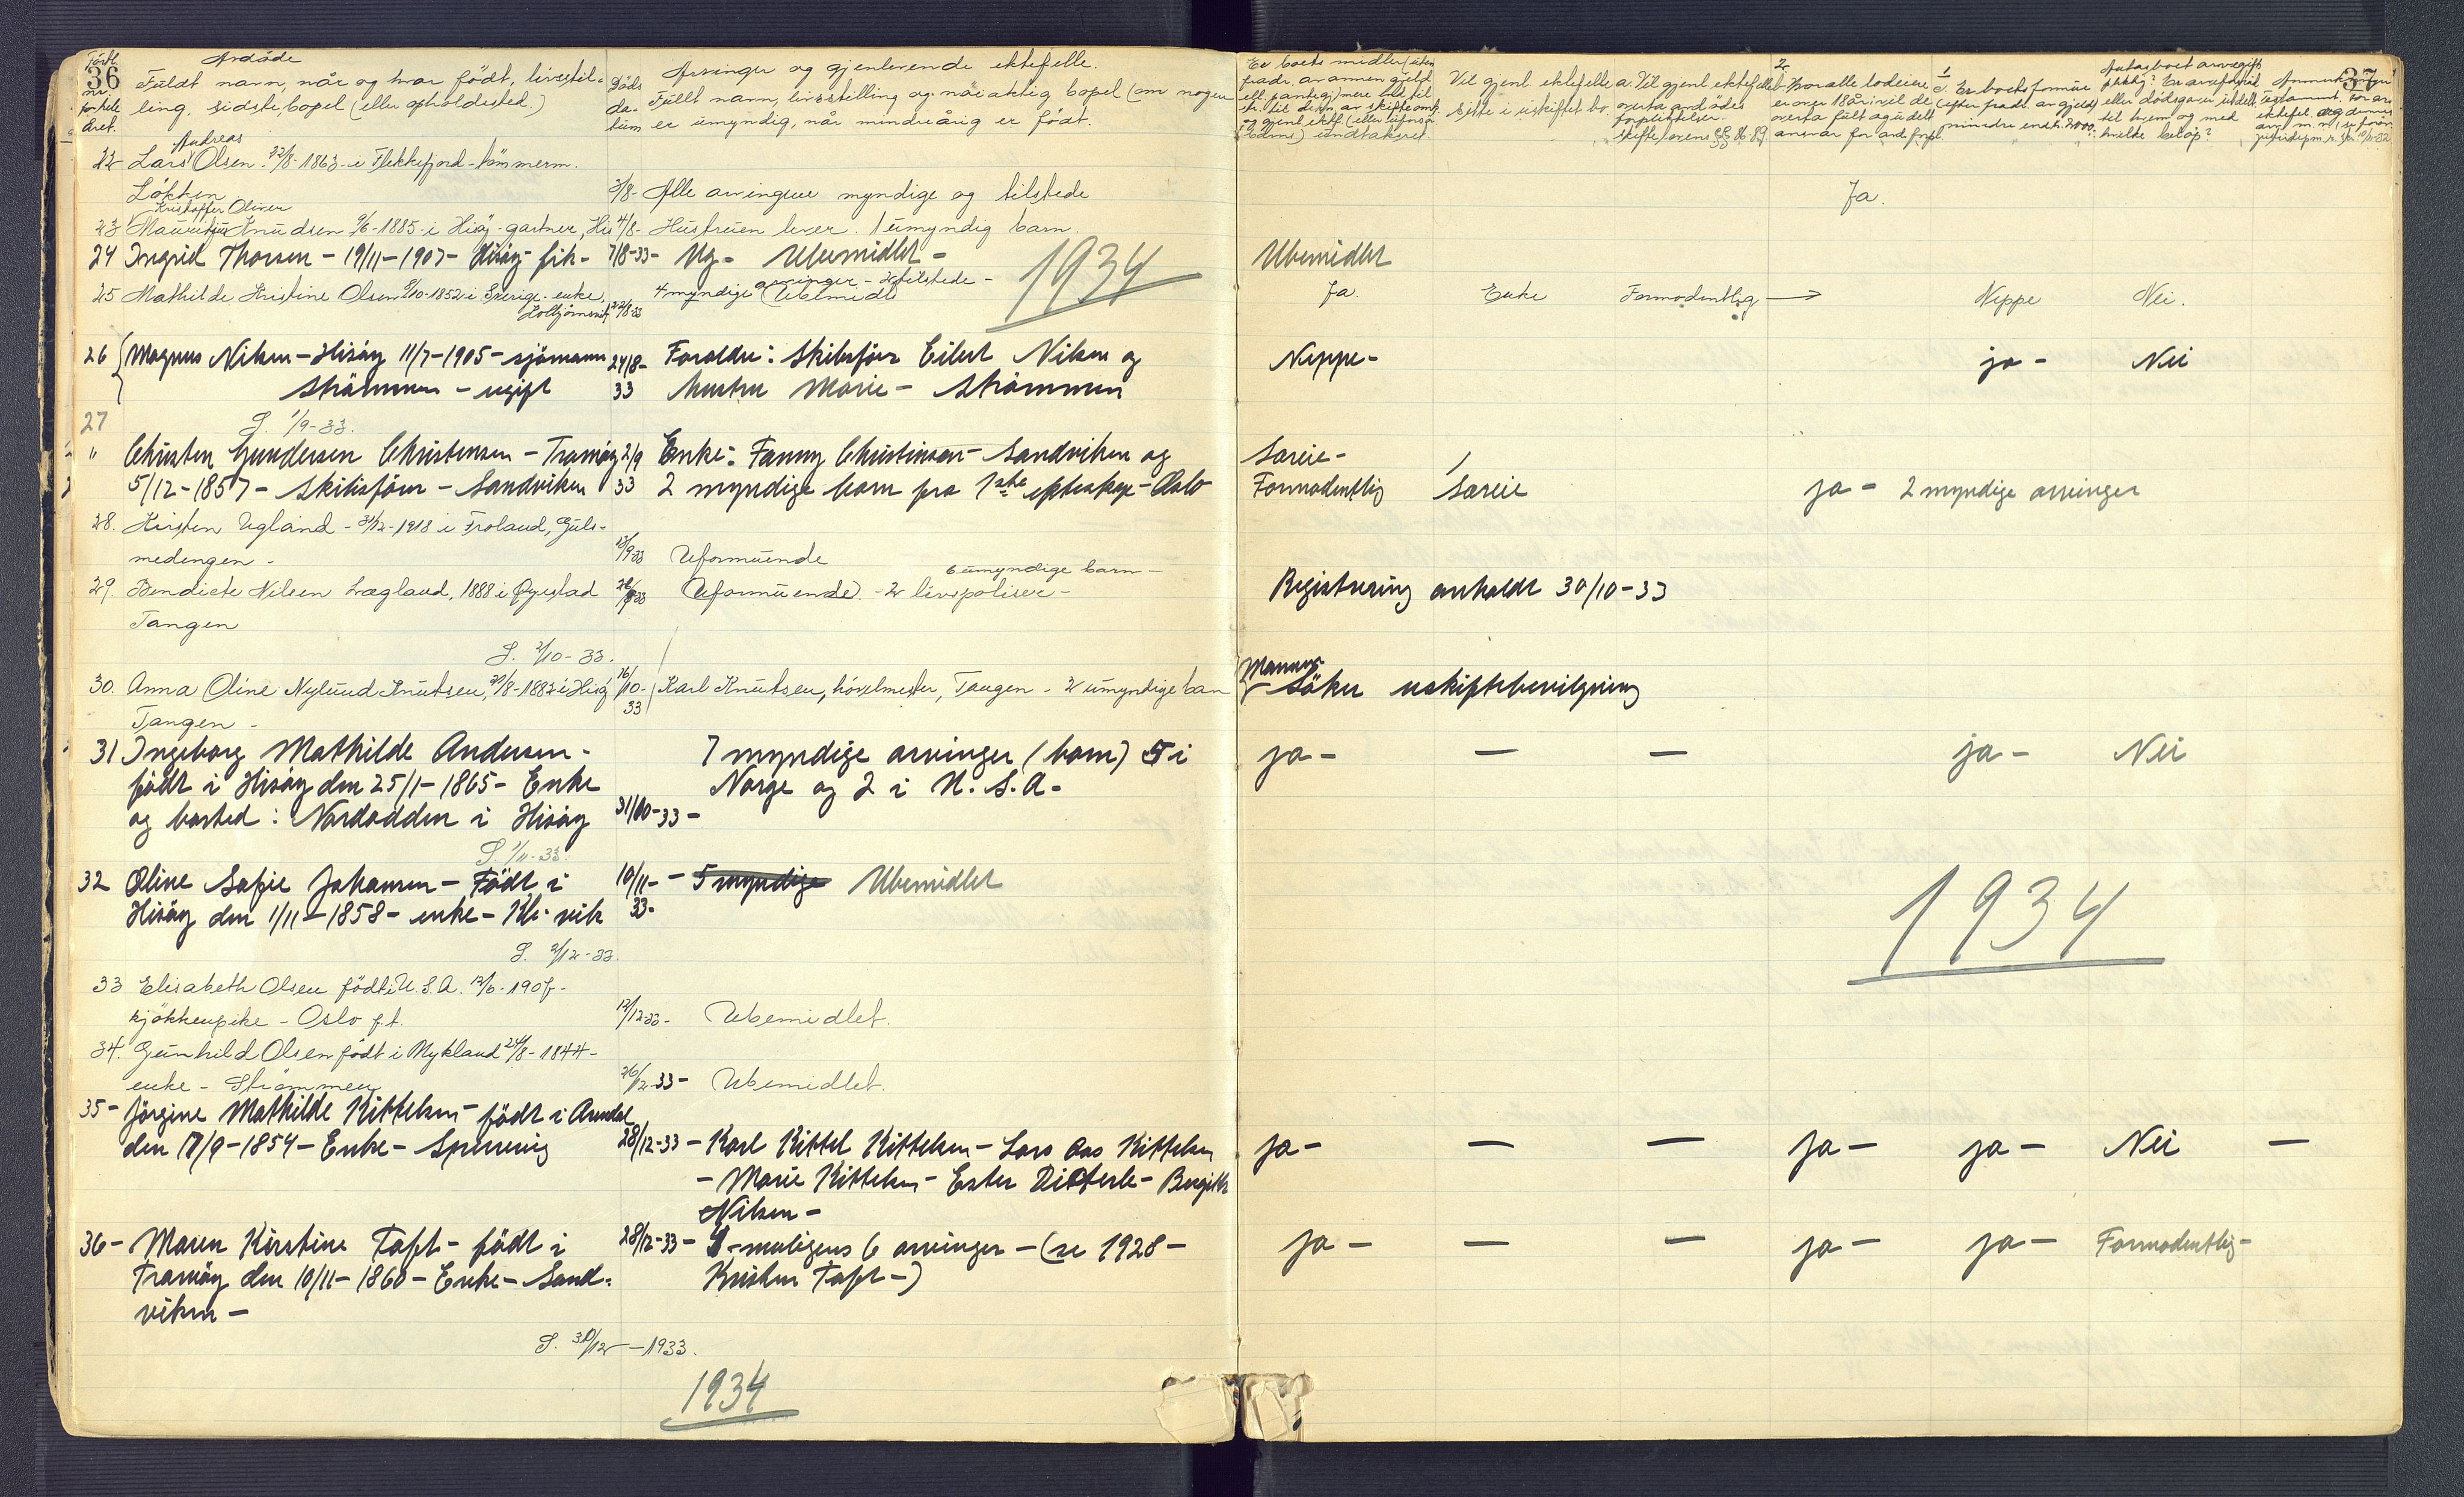 36
Avdøde
Fuldt navn, når og hvor født, livsstil-
ling, sidste bopel (eller opholdssted.)
Døds
da-
tum
Arvinger og gjenlevende ektefelle.
Fullt navn, livsstilling og nøiaktig bopel (om nogen
er umyndig, når mindreårig er født.
Andreas
22 Lars Olsen 22/8-1863 i Flekkefjord - tømmerm.
Løkken 3/8- Alle arvingene myndige og tilstede
Kristoffer Oliver
23 Knudsen 9/6-1885 i Hisøy - gartner, His 4/8- Hustruen lever. 1 umyndig barn.
24 Ingrid Thorsen - 19/11-1907 - Hisøy - 7/8-33- Ug- Ubemidlet -
arvinger - tilstede -
25 Mathilde Kristine Olsen 9/10-1852 i Sverige. enke, 22/8-33 4 myndige (Ubemidl
1934
26 Magnus Nilsen - Hisøy 11/7-1905 - sjømann 24/8- Foreldre: Skibsfører Eilert Nilsen og
Strømmen - ugift 33 hustru Marie - Strømmen
27 S. 1/9-33.
" Christen Gundersen Christensen - Tromøy 2/9 Enke: Fanny Christensen - Sandviken og
5/12-1857 - Skibsfører - Sandviken 33 2 myndige barn fra 1ste ekteskap - Oslo
28. Kirsten Ugland - 31/12-1918 i Froland, Guls-
medengen - 13/9-33 Uformuende
6 umyndige barn -
29. Bendicte Nilsen Lægland, 1888 i Øyestad (Uformuende). - 2 livspoliser -
Tangen
S. 2/10-33.
30. Anna Oline Nylund Knutsen, 31/8-1882 i Hisøy 16/10-33 Karl Knutsen, høvelmester, Tangen - 2 umyndige barn
Tangen -
31 Ingeborg Mathilde Andersen - 7 myndige arvinger (barn) 5 i
født i Hisøy den 25/1-1865 - Enke Norge og 2 i U.S.A-
og bosted: Nordodden i Hisøy 31/10-33-
S. 1/11-33.
32 Oline Sofie Johansen - Født i 10/11- - 5 myndige Ubemidlet
Hisøy den 1/11-1858 - enke - Kl. vik 33-
S. 2/12-33.
33 Elisabeth Olsen født i U.S.A. 12/6-1907-
kjøkkenpike - Oslo f.t. 12/12-33- Ubemidlet.
34. Gunhild Olsen født i Mykland 24/8-1844-
enke - Strømmen 26/12-33- Ubemidlet.
35- Jørgine Mathilde Kittelsen - født i Arendal
den 17/9-1854 - Enke - Spærning 28/12-33- Karl Kittel Kittelsen - Lars Aas Kittelsen
- Marie Kittelsen - Ester Ditterle - Bergitte
Nilsen -
36- Maren Kirstine Toft - født i 28/12-33- muligens 6 arvinger - (se 1928-
Tromøy den 10/11-1860 - Enke - Sand- Kristen Toft -)
viken -
S. 30/12-1933.
1934
37
Er boets midler (uten
Vil gjenl. ektefelle
sitte i uskiftet bo
a. Vil gjenl. ektefelle
overta avdødes
forpliktelser.
mindre enn kr. 2000,-
hvilke beløp?
Ja.
Ubemidlet
Ja. Enke Formodentlig → Neppe Nei.
Neppe- ja- Nei
Særeie-
Formodentlig Særeie ja - 2 myndige arvinger
Registrering anholdt 30/10-33
Mannen
Søker uskiftebevilgning
ja- — — ja- Nei
1934
ja- — — ja- ja- Nei —
ja- — — ja- ja- Formodentlig-